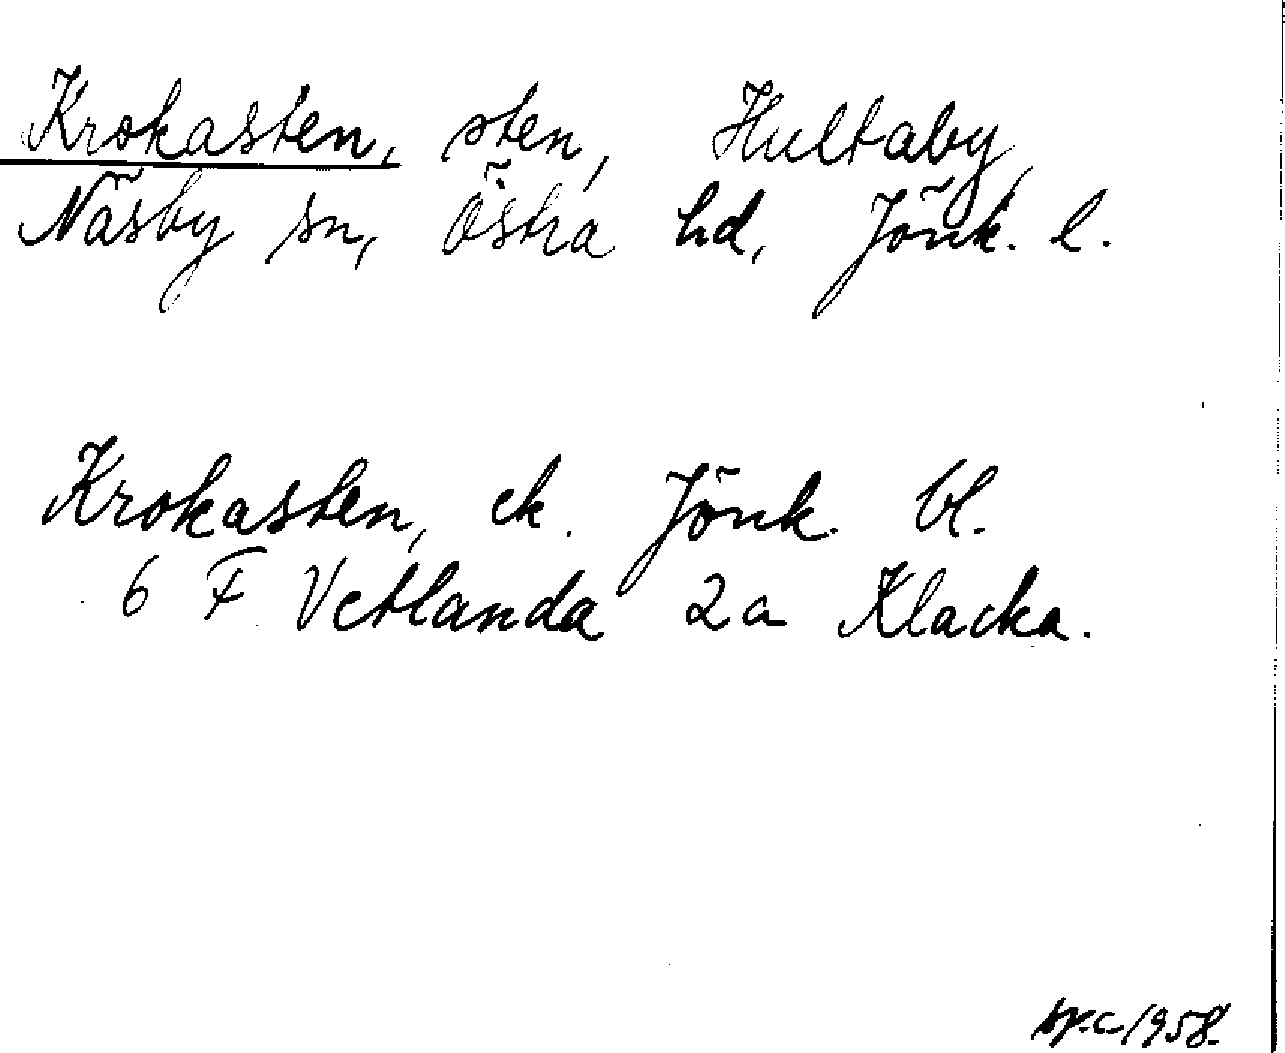 Krokasten, sten, Hultaby,
Näsby sn, Östra hd, Jönk. l.
Krokasten, ek. Jönk. bl.
6 F Vetlanda 2a Klacka.
1958.